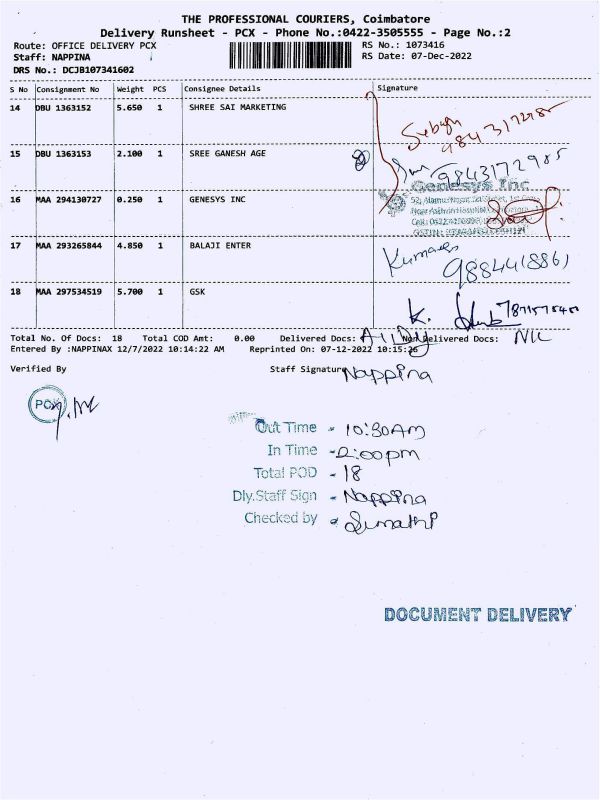 THE PROFESSIONAL COURIERS, Coimbatore
Delivery Runsheet - PCX - Phone No.:0422-3505555 - Page No.:2
Route: OFFICE DELIVERY PCX RS No.: 1073416
Staff: NAPPINA RS Date: 07-Dec-2022
DRS No.: DCJB107341602
S No Consignment No Weight PCS Consignee Details Signature
14 DBU 1363152 5.650 1 SHREE SAI MARKETING
9843172985
15 DBU 1363153 2.100 1 SREE GANESH AGE
9843172985
Genesys Inc
16 MAA 294130727 0.250 1 GENESYS INC
17 MAA 293265844 4.850 1 BALAJI ENTER
Kumares
9884418861
18 MAA 297534519 5.700 1 GSK
K.
Total No. Of Docs: 18 Total COD Amt: 0.00 Delivered Docs: All Dly Non Delivered Docs: NIL
Entered By :NAPPINAX 12/7/2022 10:14:22 AM Reprinted On: 07-12-2022 10:15:26
Verified By Staff Signature Nappina
PCX
Out Time - 10:30AM
In Time - 2:00pm
Total POD - 18
Dly.Staff Sign - Nappina
Checked by - Sumathi
DOCUMENT DELIVERY